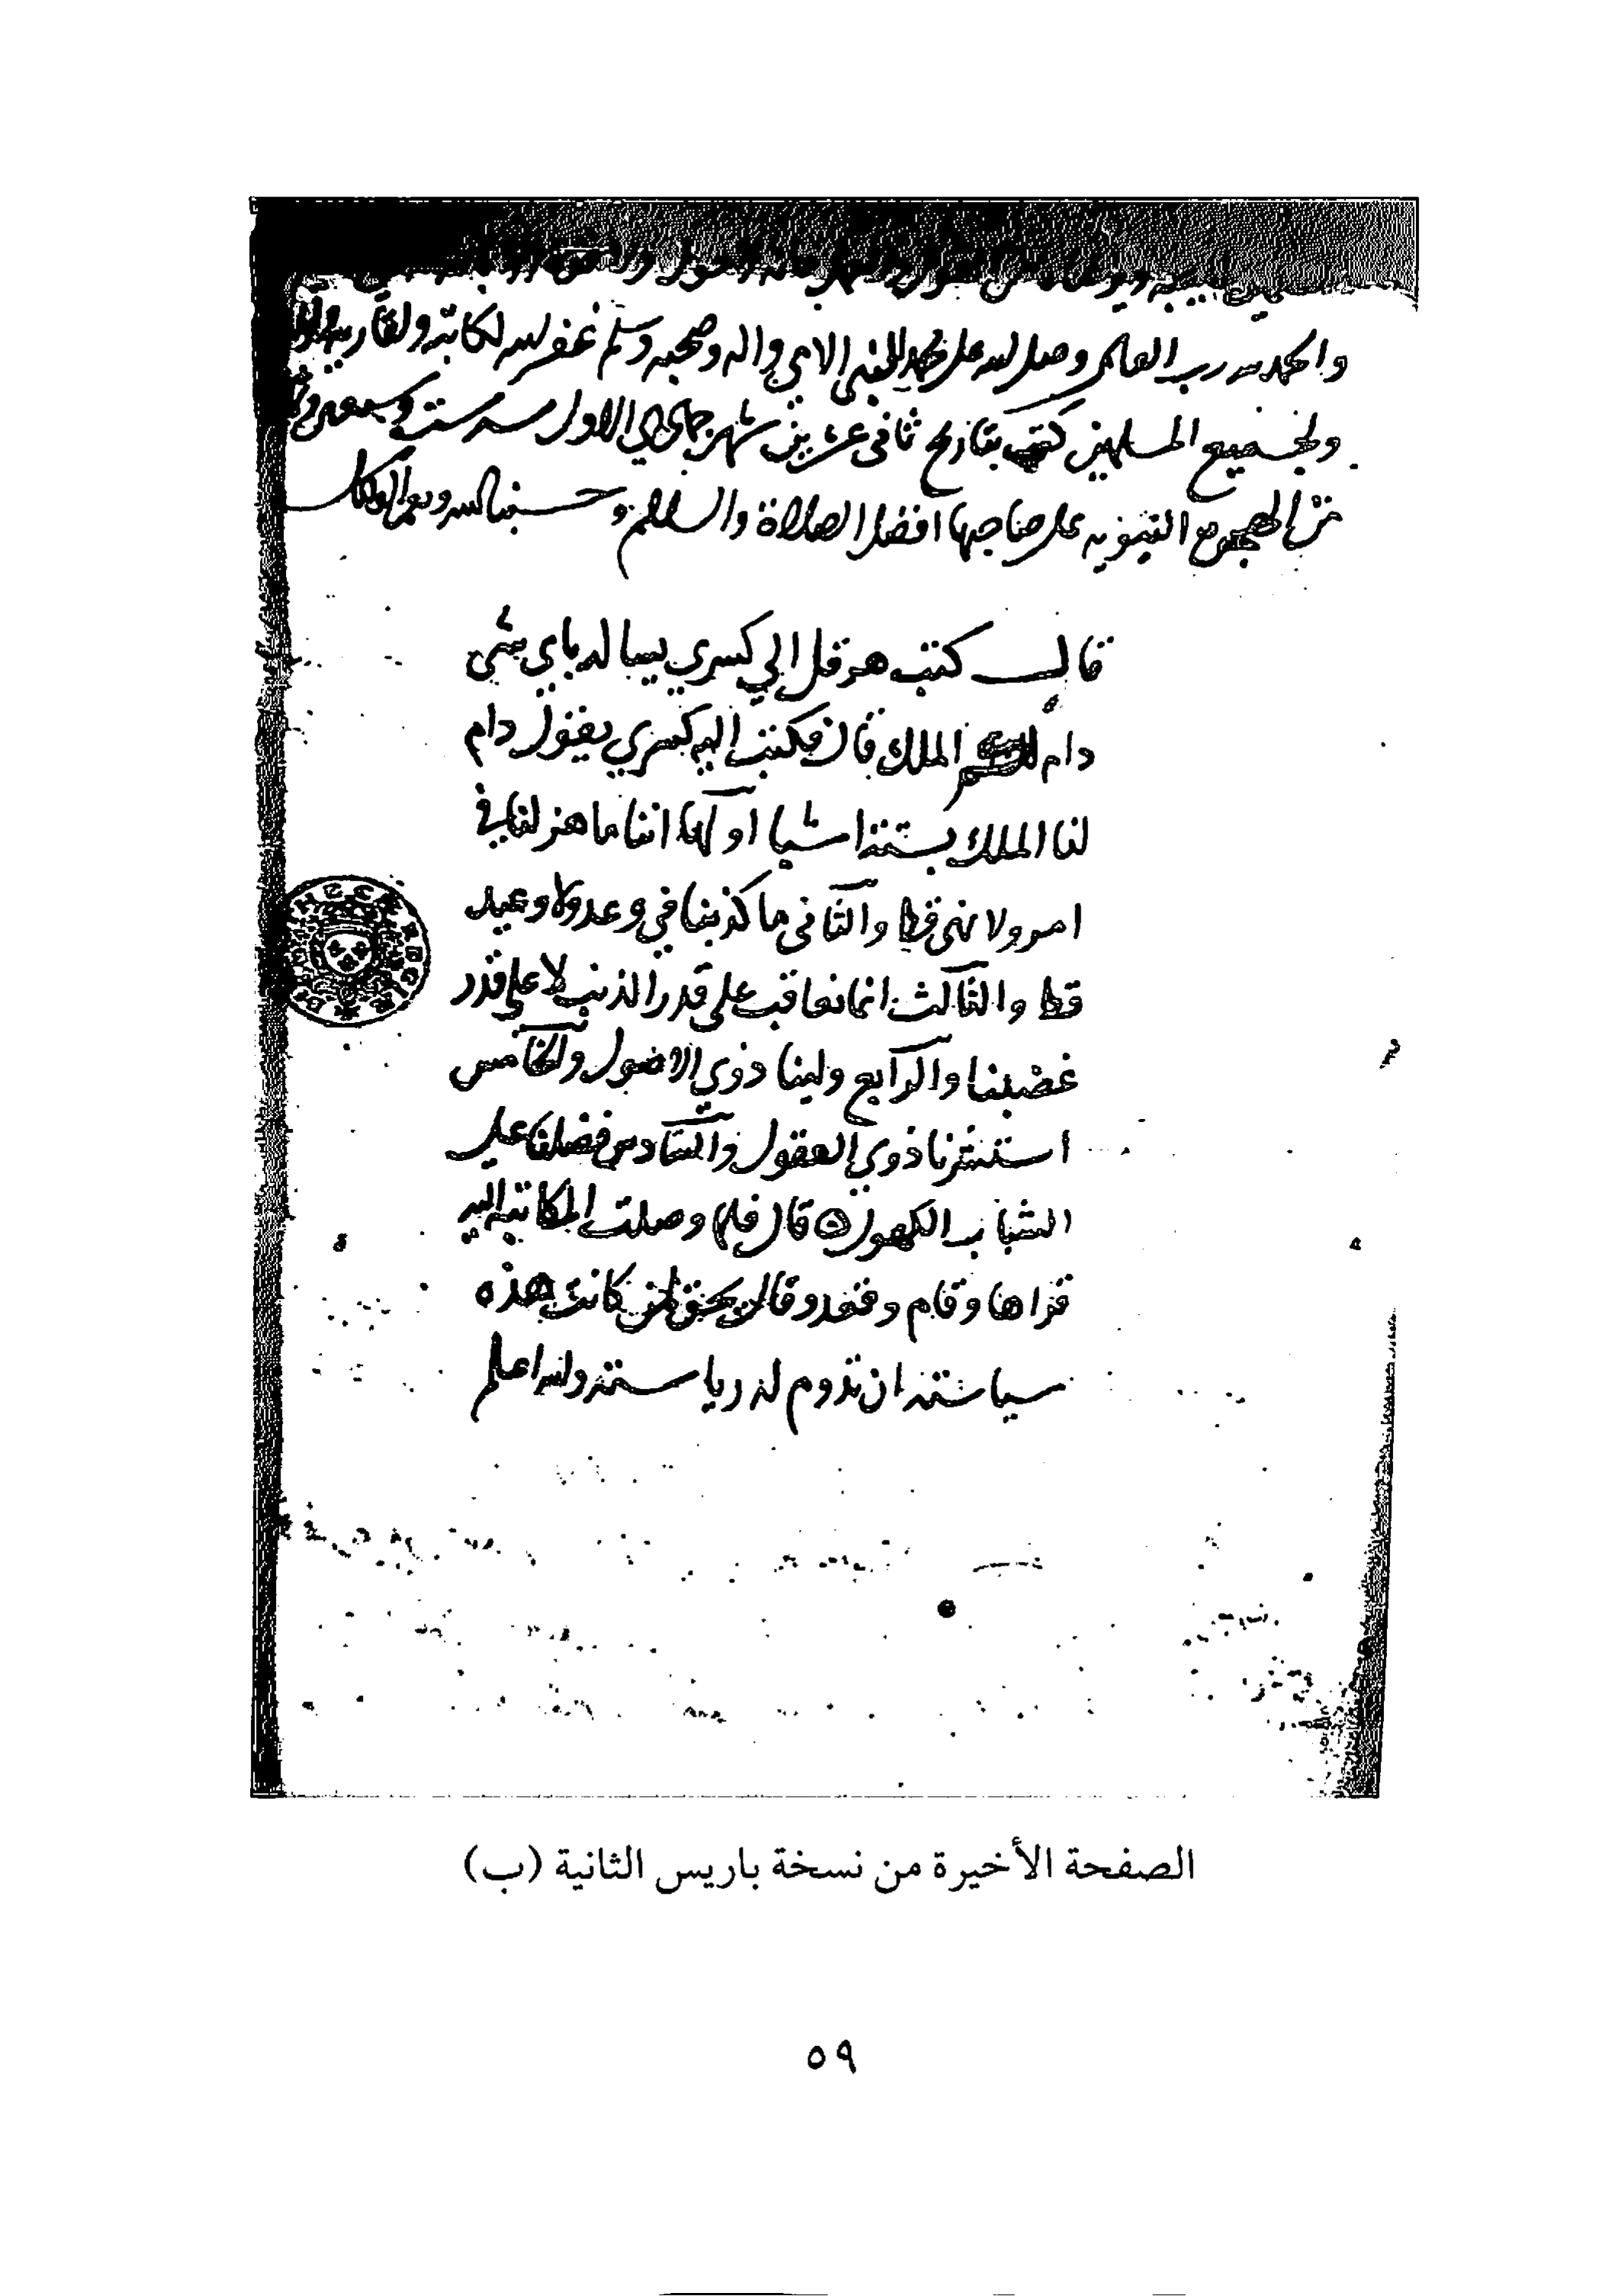 والحمد لله رب العالمين وصلى الله على محمد النبي الامي واله وصحبه وسلم غفر الله لكاتبه ولقاريه
ولجميع المسلمين كتب بتاريخ ثاني عشرين شهر جمادي الاول سنه ست وسبعين
من الهجره النبويه على صاحبها افضل الصلاة والسلام وحسبنا الله ونعم الوكيل
قال كتب هرقل الي كسري يساله باي شي
دام الملك قال فكتب اليه كسري يقول دام
لنا الملك بستة اشيا اولها اننا ما هزلنا في
امر ولا نهي قط والثاني ما كذبنا في وعد ولا وعيد
قط والثالث انما نعاقب على قدر الذنب لا على قدر
غضبنا والرابع ولينا ذوي الاصول والخامس
استشرنا ذوي العقول والسادس فضلنا على
الشباب الكهول قال فلما وصلت المكاتبه اليه
قراها وقام وقعد وقال يحق لمن كانت هذه
سياسته ان تدوم له رياسته والله اعلم
الصفحة الأخيرة من نسخة باريس الثانية (ب)
٥٩